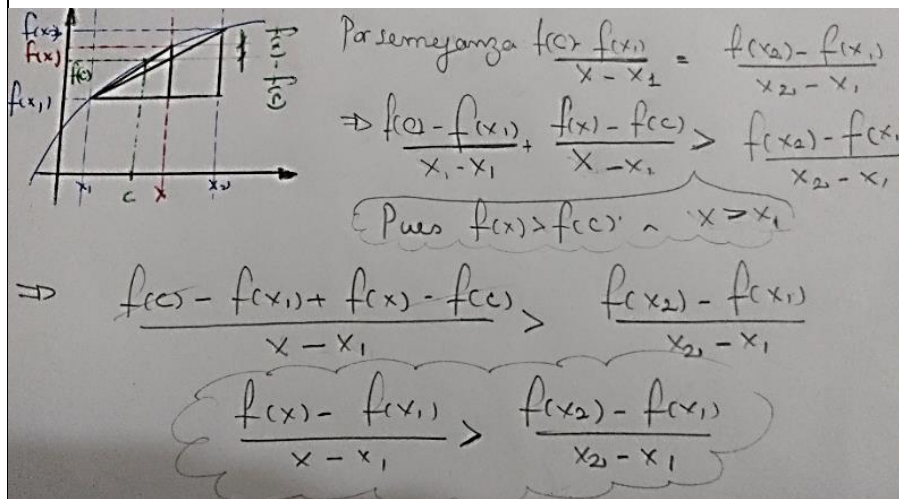 f(x₂)
f(x)
f(c)
f(x₁)
x₁ c x x₂
Por semejanza f(c) - f(x₁) / x - x₁ = f(x₂) - f(x₁) / x₂ - x₁
⇒ f(c) - f(x₁) / x₁ - x₁ + f(x) - f(c) / x - x₁ > f(x₂) - f(x₁ / x₂ - x₁
Pues f(x) > f(c) ∧ x > x₁
⇒ f(c) - f(x₁) + f(x) - f(c) / x - x₁ > f(x₂) - f(x₁) / x₂ - x₁
f(x) - f(x₁) / x - x₁ > f(x₂) - f(x₁) / x₂ - x₁